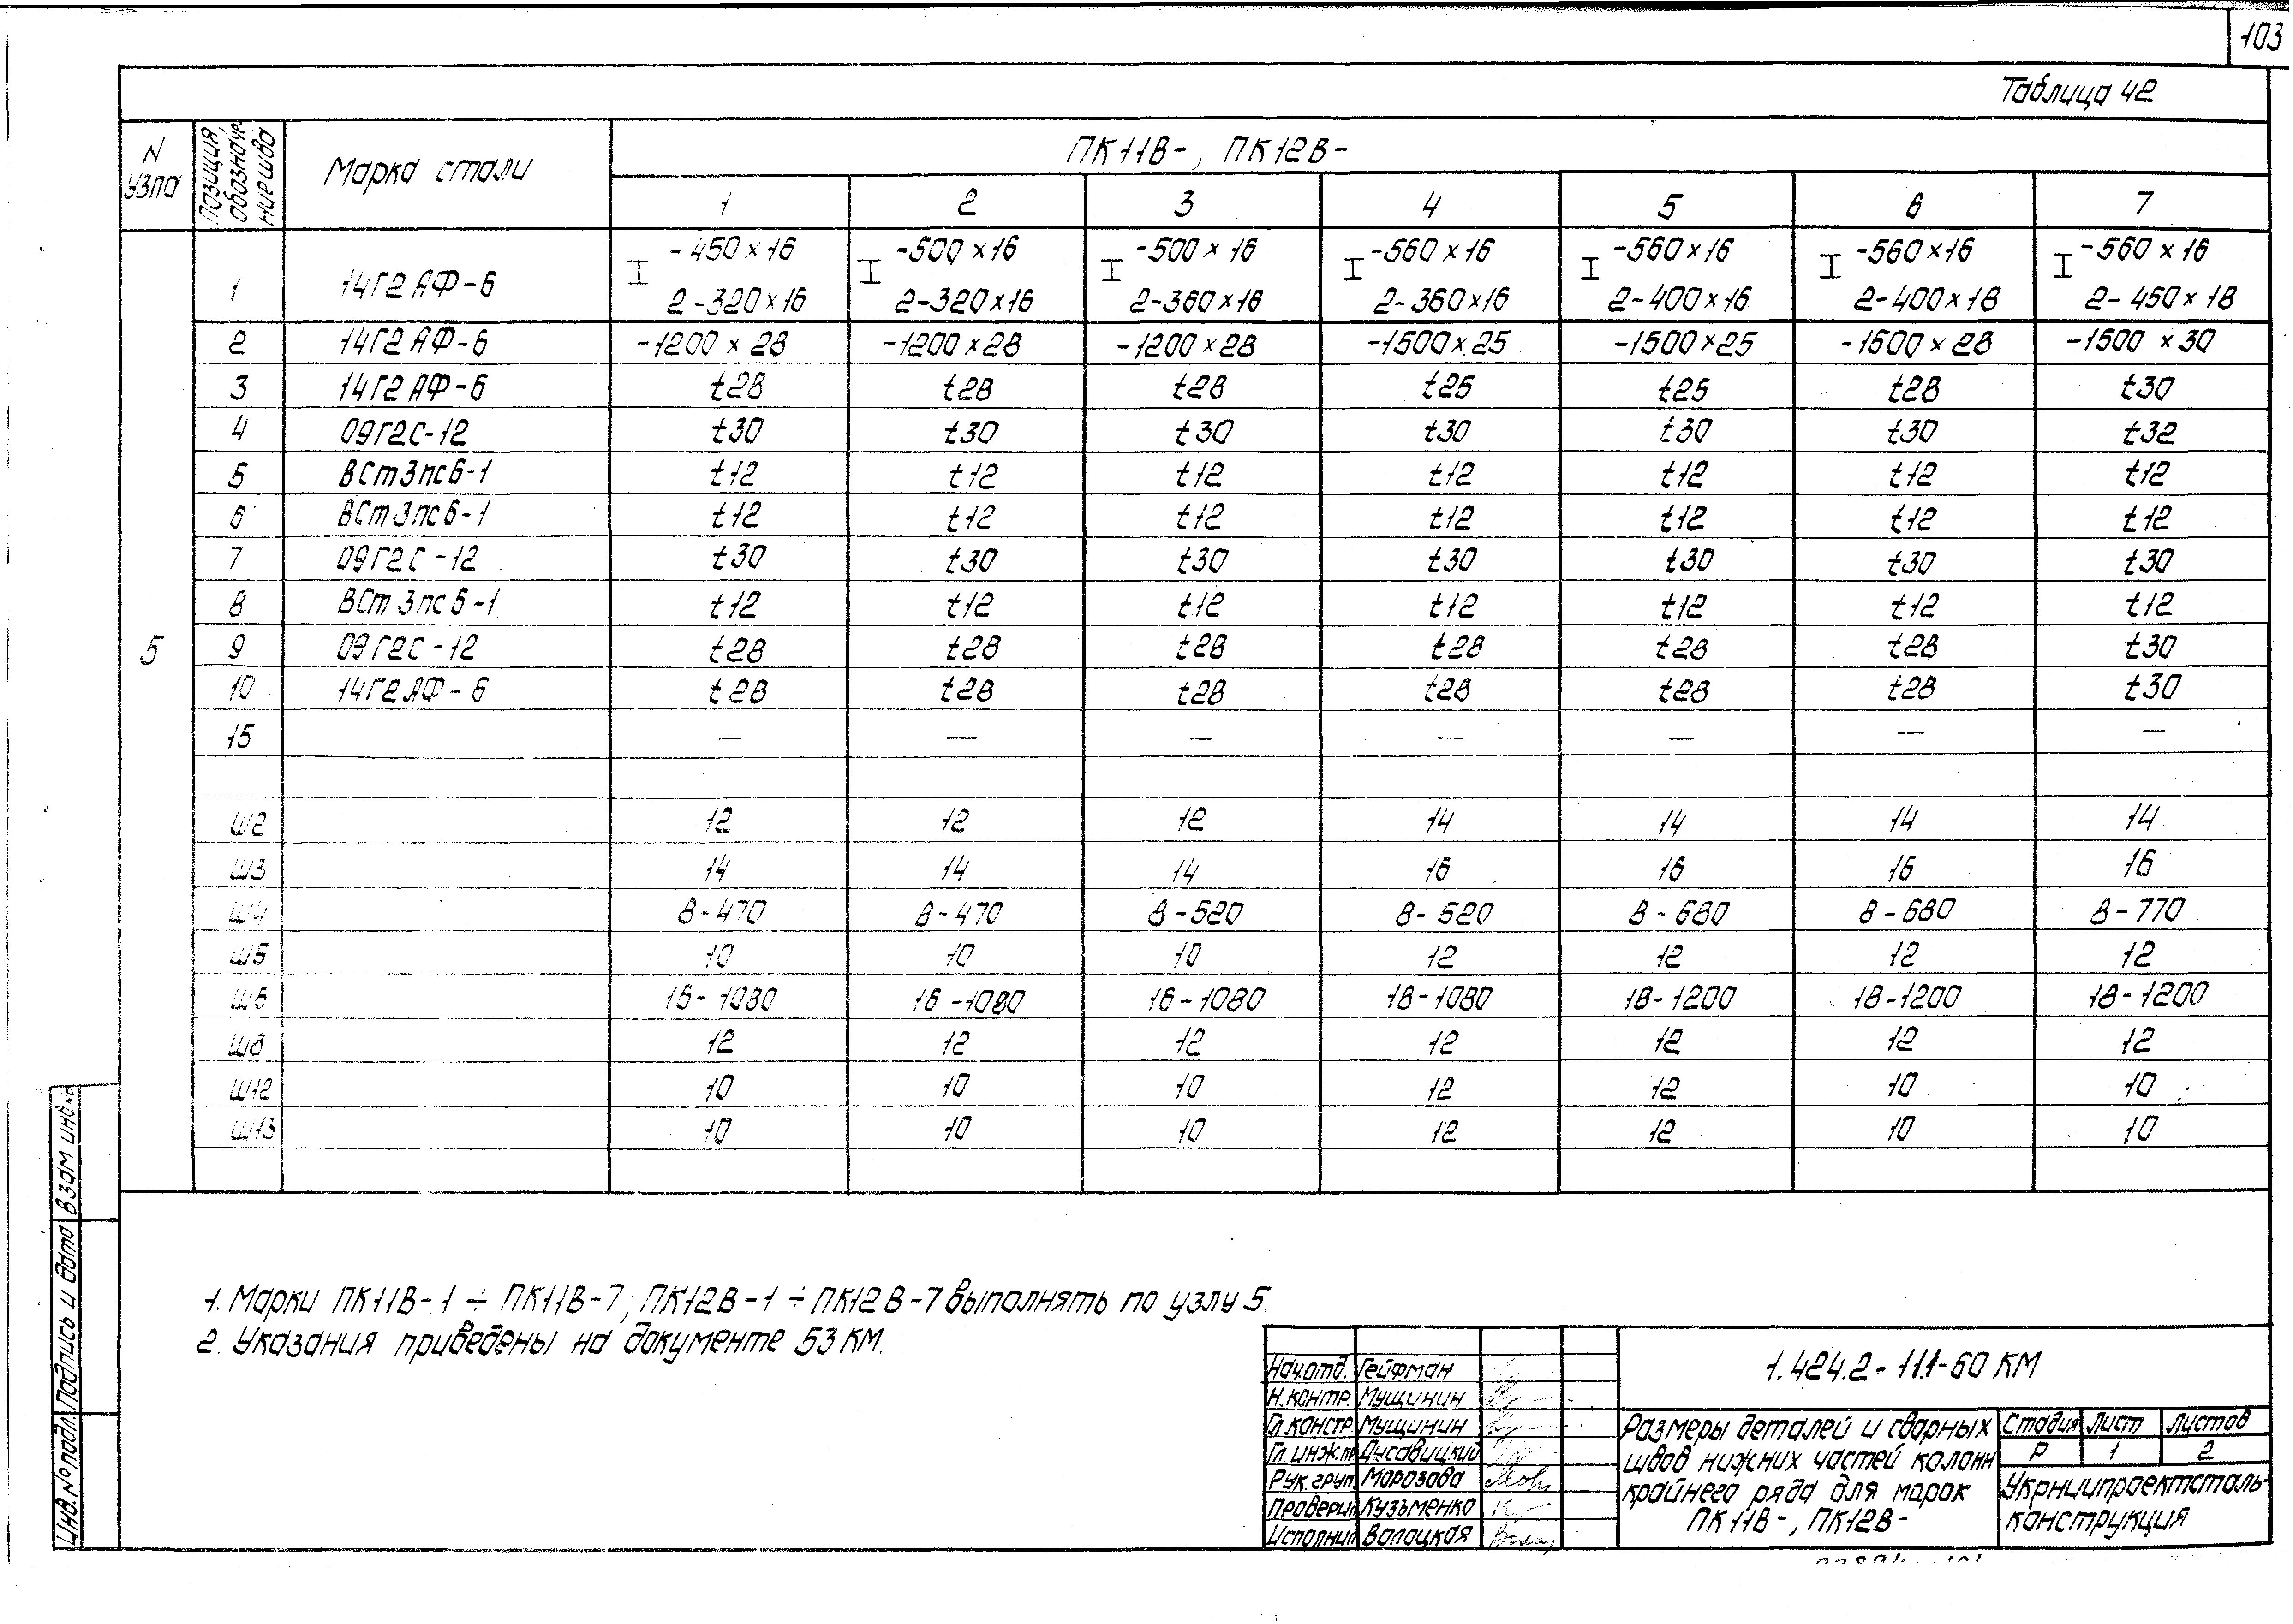 103
Таблица 42
N узла | Позиция, обозначение шва | Марка стали | ПК11В-, ПК12В-
1 | 2 | 3 | 4 | 5 | 6 | 7
5
1 | 14Г2АФ-6 | I -450×16 2-320×16 | I -500×16 2-320×16 | I -500×16 2-360×16 | I -560×16 2-360×16 | I -560×16 2-400×16 | I -560×16 2-400×18 | I -560×16 2-450×18
2 | 14Г2АФ-6 | -1200×28 | -1200×28 | -1200×28 | -1500×25 | -1500×25 | -1500×28 | -1500×30
3 | 14Г2АФ-6 | t28 | t28 | t28 | t25 | t25 | t28 | t30
4 | 09Г2С-12 | t30 | t30 | t30 | t30 | t30 | t30 | t32
5 | ВСт3пс6-1 | t12 | t12 | t12 | t12 | t12 | t12 | t12
6 | ВСт3пс6-1 | t12 | t12 | t12 | t12 | t12 | t12 | t12
7 | 09Г2С-12 | t30 | t30 | t30 | t30 | t30 | t30 | t30
8 | ВСт3пс6-1 | t12 | t12 | t12 | t12 | t12 | t12 | t12
9 | 09Г2С-12 | t28 | t28 | t28 | t28 | t28 | t28 | t30
10 | 14Г2АФ-6 | t28 | t28 | t28 | t28 | t28 | t28 | t30
15 | — | — | — | — | — | — | —
Ш2 | 12 | 12 | 12 | 14 | 14 | 14 | 14
Ш3 | 14 | 14 | 14 | 16 | 16 | 16 | 16
Ш4 | 8-470 | 8-470 | 8-520 | 8-520 | 8-680 | 8-680 | 8-770
Ш5 | 10 | 10 | 10 | 12 | 12 | 12 | 12
Ш6 | 16-1080 | 16-1080 | 16-1080 | 18-1080 | 18-1200 | 18-1200 | 18-1200
Ш8 | 12 | 12 | 12 | 12 | 12 | 12 | 12
Ш12 | 10 | 10 | 10 | 12 | 12 | 10 | 10
Ш13 | 10 | 10 | 10 | 12 | 12 | 10 | 10
1. Марки ПК11В-1 ÷ ПК11В-7; ПК12В-1 ÷ ПК12В-7 выполнять по узлу 5.
2. Указания приведены на документе 53 КМ.
Инв. № подл. | Подпись и дата | Взам инв №
Нач.отд. Гейфман
Н.контр. Мущинин
Гл.констр Мущинин
Гл.инж.пр Дусавицкий
Рук.груп. Марозова
Проверил Кузьменко
Исполнил Валоцкая
1.424.2-11.1-60 КМ
Размеры деталей и сварных
швов нижних частей колонн
крайнего ряда для марок
ПК11В-, ПК12В-
Стадия | Лист | Листов
Р | 1 | 2
Укрниипроектсталь-
конструкция